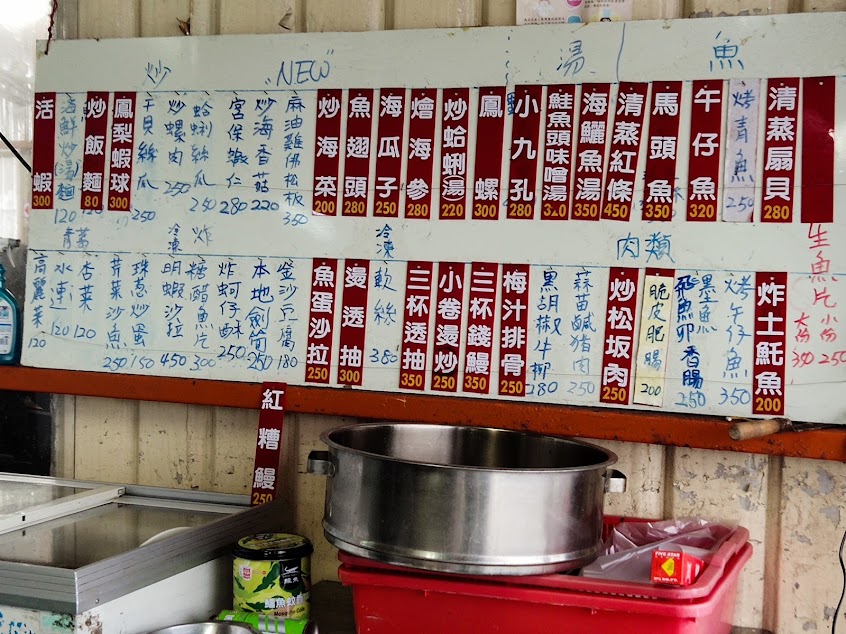 炒 "NEW" 湯 魚
活蝦 300
活鮮炒(湯)麵 120
炒飯麵 80
鳳梨蝦球 300
干貝絲瓜 250
炒螺肉 250
蛤蜊絲瓜 250
宮保蝦仁 280
炒海香菇 220
麻油雞佛松板 350
炒海菜 200
魚翅頭 280
海瓜子 250
燴海參 280
炒蛤蜊(湯) 220
鳳螺 300
小九孔 280
鮭魚頭味噌湯
海鱺魚湯 350
清蒸紅條 450
馬頭魚 350
午仔魚 320
烤青魚 250
清蒸扇貝 280
生魚片
大份 350
小份 250
冷凍
炸
冷凍
肉類
高麗菜 120
水連 120
杏菜 120
芹菜沙魚 250
珠葱炒蛋 150
明蝦沙拉 450
糖醋魚片 300
炸蚵仔酥 250
本地劍筍 250
釜沙豆腐 180
魚蛋沙拉 250
燙透抽 300
軟絲 380
三杯透抽 350
小卷燙炒 250
三杯錢鰻 350
梅汁排骨 250
黑胡椒牛柳 280
蒜苗鹹豬肉 250
炒松坂肉 250
脆皮肥腸 200
飛魚卵香腸 250
墨魚
烤午仔魚 350
炸土魠魚 200
紅糟鰻 250
FIVE STAR